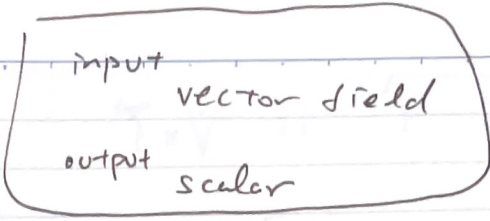 input
vector field
output
scalar